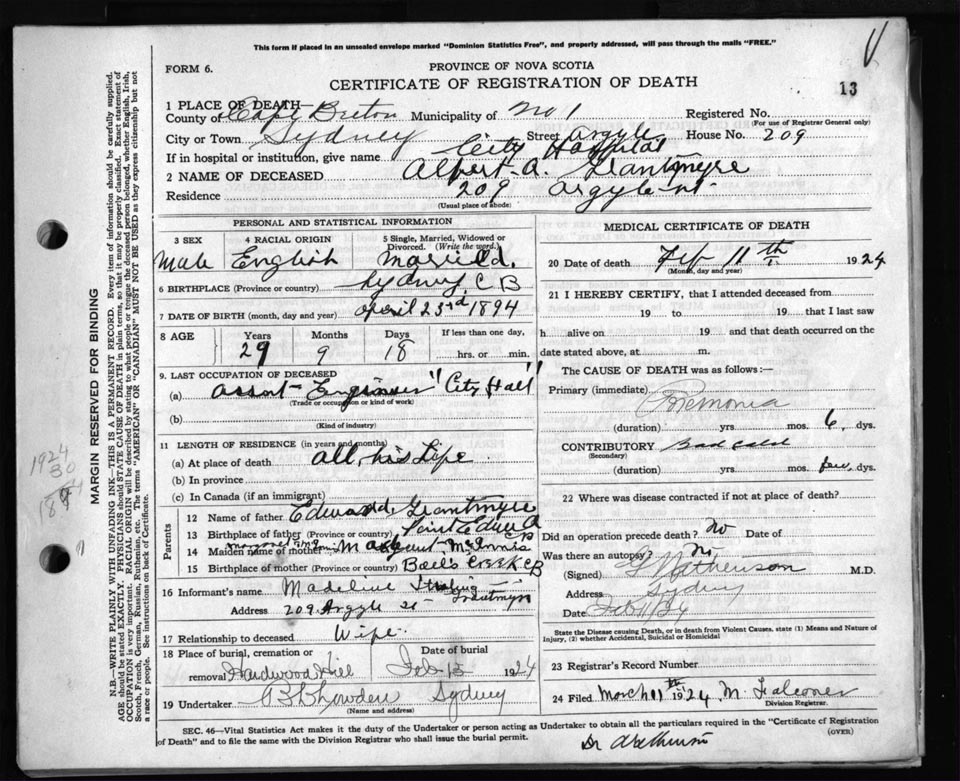 This form if placed in an unsealed envelope marked "Dominion Statistics Free", and properly addressed, will pass through the mails "FREE."
FORM 6.
PROVINCE OF NOVA SCOTIA
CERTIFICATE OF REGISTRATION OF DEATH
13
1 PLACE OF DEATH—
County of Cape Breton Municipality of No 1 Registered No.
(For use of Registrar General only)
City or Town Sydney Street Argyle House No. 209
If in hospital or institution, give name City Hospital
2 NAME OF DECEASED Albert A. Grantmyre
Residence 209 Argyle st
(Usual place of abode)
PERSONAL AND STATISTICAL INFORMATION
3 SEX 4 RACIAL ORIGIN 5 Single, Married, Widowed or Divorced. (Write the word.)
Male English Married.
6 BIRTHPLACE (Province or country) Sydney, C B
7 DATE OF BIRTH (month, day and year) April 23rd 1894
8 AGE Years Months Days If less than one day,
29 9 18 hrs. or min.
9. LAST OCCUPATION OF DECEASED
(a) Assant Engineer "City Hall"
(Trade or occupation or kind of work)
(b)
(Kind of industry)
11 LENGTH OF RESIDENCE (in years and months)
(a) At place of death all his Life
(b) In province
(c) In Canada (if an immigrant)
Parents
12 Name of father Edward Grantmyre
13 Birthplace of father (Province or country) Point Edward CB
14 Maiden name of mother McInnis
15 Birthplace of mother (Province or country) Balls Creek CB
16 Informant's name Madeline Grantmyre
Address 209 Argyle st
17 Relationship to deceased Wife
18 Place of burial, cremation or removal Date of burial
Hardwood Hill Feb 13 1924
19 Undertaker Sydney
(Name and address)
MEDICAL CERTIFICATE OF DEATH
20 Date of death Feb 11th 1924
(Month, day and year)
21 I HEREBY CERTIFY, that I attended deceased from
19 to 19 that I last saw
h alive on 19 and that death occurred on the
date stated above, at m.
The CAUSE OF DEATH was as follows:—
Primary (immediate) Pnemonia
(duration) yrs. mos. 6 dys.
CONTRIBUTORY Bad cold
(Secondary)
(duration) yrs. mos. few dys.
22 Where was disease contracted if not at place of death?
Did an operation precede death? No Date of
Was there an autopsy? No
(Signed) M.D.
Address Sydney
Date Feb 11/24
State the Disease causing Death, or in death from Violent Causes, state (1) Means and Nature of Injury, (2) whether Accidental, Suicidal or Homicidal
23 Registrar's Record Number
24 Filed March 11th 1924 M. Falconer
Division Registrar.
SEC. 46—Vital Statistics Act makes it the duty of the Undertaker or person acting as Undertaker to obtain all the particulars required in the "Certificate of Registration
of Death" and to file the same with the Division Registrar who shall issue the burial permit.
(OVER)
MARGIN RESERVED FOR BINDING
N.B.—WRITE PLAINLY WITH UNFADING INK—THIS IS A PERMANENT RECORD. Every item of information should be carefully supplied.
AGE should be stated EXACTLY. PHYSICIANS should STATE CAUSE OF DEATH in plain terms, so that it may be properly classified. Exact statement of
OCCUPATION is very important. RACIAL ORIGIN will be described by stating to what people or tongue the deceased person belonged, whether English, Irish,
Scotch, French, German, Russian, Ruthenian, etc. The terms "AMERICAN" OR "CANADIAN" MUST NOT BE USED as they express citizenship but not
a race or people. See instructions on back of Certificate.
1924
30